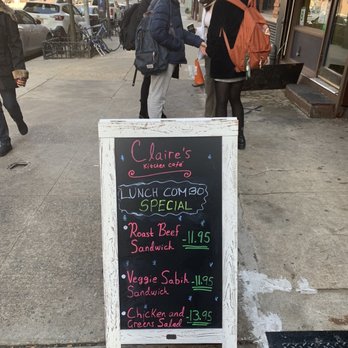 Claire's
Kitchen Café
LUNCH COMBO
SPECIAL
Roast Beef
Sandwich -11.95
Veggie Sabik -11.95
Sandwich
Chicken and
Greens Salad -13.95